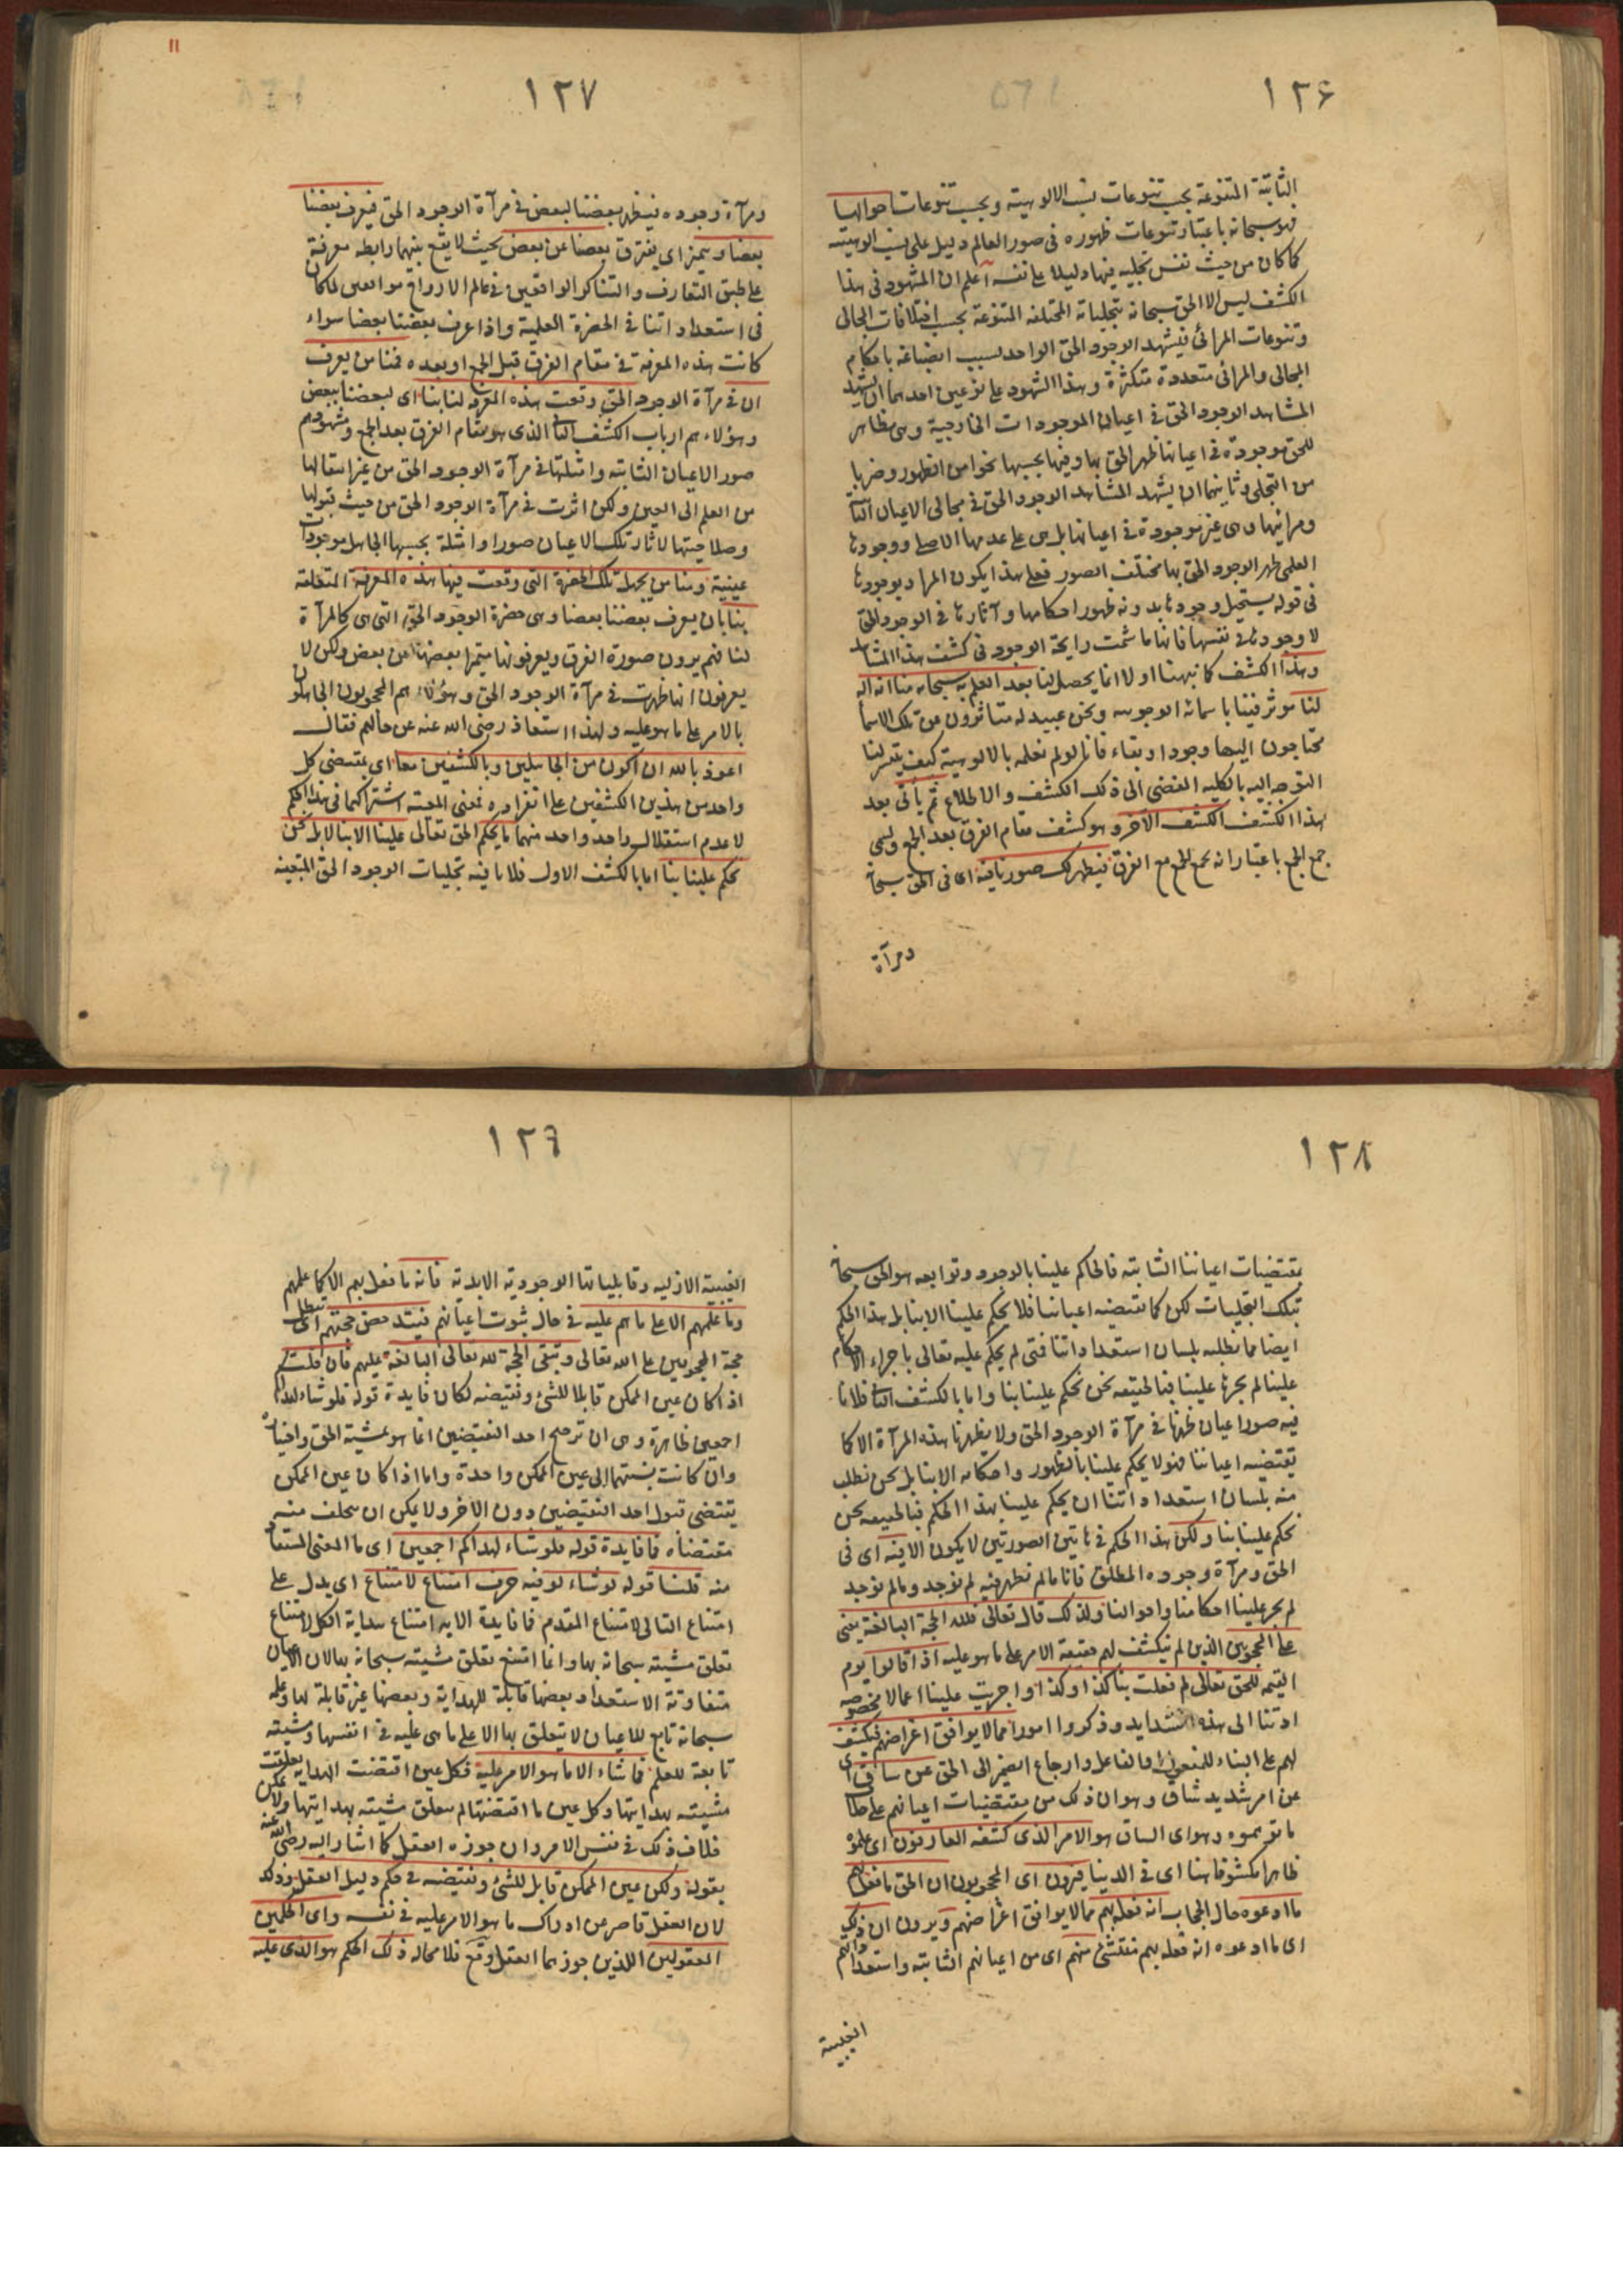 ١٢٦
الثابتة المتنوعة بحسب تنوعات نسب الالوهية وبحسب تنوعات احوالها
فهو سبحانه باعتبار تنوعات ظهوره فى صور العالم دليل على نسب الوهيته
كما كان من حيث نفس تجليه فيها دليلا على نفسه اعلم ان المشهود فى هذا
الكشف ليس الا الحق سبحانه بتجلياته المختلفة المتنوعة بحسب اختلافات المجالى
وتنوعات المرائى فيشهد الوجود الحق الواحد بسبب انصباغه باحكام
المجالى والمرائى متعددة متكثرة وهذا الشهود على نوعين احدهما ان يشهد
المشاهد الوجود الحق فى اعيان الموجودات الخارجية وهى مظاهر
للحق موجودة فى اعيانها ظهر الحق بها وفيها بحسبها نحوا من الظهور وضربا
من التجلى وثانيهما ان يشهد المشاهد الوجود الحق فى مجالى الاعيان الثا
ومرائيها وهى غير موجودة فى اعيانها بل هى على عدمها الاصلى ووجودها
العلمى ظهر الوجود الحق بها مختلف الصور فعلى هذا يكون المراد بوجودها
فى قوله يستحيل وجودها بدونه ظهور احكامها وآثارها فى الوجود الحق
لا وجودها فى نفسها فانها ما شمت رايحة الوجود فى كشف هذا المشاهد
وهذا الكشف كما نبهنا اولا انما يحصل لنا بعد العلم به سبحانه منا انه اله
لنا مؤثر فينا باسمائه الوجوبيه ونحن عبيد له متأثرون عن تلك الاسما
محتاجون اليها وجودا وبقاء فانا لو لم نعلمه بالالوهية كيف يتيسر لنا
التوجه اليه بالكلية المفضى الى ذلك الكشف والاطلاع ثم يأتى بعد
هذا الكشف الكشف الآخر وهو كشف مقام الفرق بعد الجمع ويسمى
جمع الجمع باعتبار انه يجمع الجمع مع الفرق فيظهر لك صورنا فيه اى فى الحق سبحانه
ومرآة
١٢٧
ومرآة وجوده فيظهر بعضنا لبعض فى مرآة الوجود الحق فيعرف بعضنا
بعضا ويتميز اى يفترق بعضنا عن بعض بحيث لا يقع بينهما رابطه معرفة
على طبق التعارف والتناكر الواقعين فى عالم الارواح
فى استعداداتنا فى الحضرة العلمية واذا عرف بعضنا بعضا سواء
كانت هذه المعرفة فى مقام الفرق قبل الجمع او بعده فمنا من يعرف
ان فى مرآة الوجود الحق وقعت هذه المعرفة لنا بنا اى لبعضنا ببعض
وهؤلاء هم ارباب الكشف الثانى الذى هو مقام الفرق بعد الجمع ومشهودهم
صور الاعيان الثابته وامثلتها فى مرآة الوجود الحق من غير انتقالها
من العلم الى العين ولكن اثرت فى مرآة الوجود الحق من حيث قبولها
وصلاحيتها لآثار تلك الاعيان صورا وامثلة يحسبها الجاهل موجودات
عينية ومنا من يجهل تلك الحضرة التى وقعت فيها هذه المعرفة المتعلقة
بنا بان يعرف بعضنا بعضا وهى حضرة الوجود الحق التى هى كالمرآة
لنا فهم يرون صورة الفرق ويعرفونها متميزا بعضها من بعض ولكن لا
يعرفون انها ظهرت فى مرآة الوجود الحق وهؤلاء هم المحجوبون الجاهلون
بالامر على ما هو عليه ولهذا استعاذ رضى الله عنه عن حالهم فقال
اعوذ بالله ان اكون من الجاهلين وبالكشفين معا اى بمقتضى كل
واحد من هذين الكشفين على انفراده فمعنى المعية اشتراكهما فى هذا الحكم
لا عدم استقلال واحد واحد منهما ما يحكم الحق تعالى علينا الا بنا لا بل نحن
نحكم علينا بنا اما بالكشف الاول فلان فيه تجليات الوجود الحق المتعينه
١٢٨
بمقتضيات اعياننا الثابته فالحاكم علينا بالوجود وتوابعه هو الحق سبحانه
بتلك التجليات لكن كما تقتضيه اعياننا فلا يحكم علينا الا بنا بل هذا الحكم
ايضا مما نطلبه بلسان استعداداتنا فمتى لم يحكم عليه تعالى باجراء الاحكام
علينا لم يجرها علينا فبالحقيقه نحن نحكم علينا بنا واما بالكشف الثانى فلان
فيه صور اعيان ظهرنا فى مرآة الوجود الحق ولا يظهرنا هذه المرآة الا كما
تقتضيه اعياننا فهو لا يحكم علينا بالظهور واحكامه الا بنا بل نحن نطلب
منه بلسان استعداداتنا ان يحكم علينا بهذا الحكم فبالحقيقه نحن
نحكم علينا بنا ولكن هذا الحكم فى هاتين الصورتين لا يكون الا فيه اى فى
الحق ومرآة وجوده المطلق فانا ما لم نظهر فيه لم نوجد وما لم نوجد
لم يجر علينا احكامنا واحوالنا ولذلك قال تعالى فلله الحجة البالغة يعنى
على المحجوبين الذين لم ينكشف لهم حقيقة الامر على ما هو عليه اذا قالوا يوم
القيمة للحق تعالى لم فعلت بنا كذا وكذا واجريت علينا اعمالا مخصوصه
ادتنا الى هذه الشدايد وذكروا امورا مما لا يوافق اغراضهم فيكشف
لهم على البناء للمفعول او الفاعل وارجاع الضمير الى الحق عن ساق اى
عن امر شديد شاق وهو ان ذلك من مقتضيات اعيانهم على خلاف
ما توهموه وهو اى الساق هو الامر الذى كشفه العارفون اى علموه
ظاهرا مكشوفا هنا اى فى الدنيا فيرون اى المحجوبون ان الحق ما فعل بهم
ما ادعوه حال الحجاب انه فعله بهم مما لا يوافق اغراضهم ويرون ان ذلك
اى ما ادعوه انه فعله بهم منتشئ منهم اى من اعيانهم الثابته واستعداداتهم
الغيبية
١٢٩
الغيبية الازلية وقابلياتها الوجودية الابدية فانه ما فعل بهم الا كما علمهم
وما علمهم الا على ما هم عليه فى حال ثبوت اعيانهم فيندحض حجتهم اى تبطل
حجة المحجوبين على الله تعالى وتبقى الحجة لله تعالى البالغة عليهم فان قلت
اذا كان عين الممكن قابلا للشئ ونقيضه لكان فايدة قوله فلو شاء لهداكم
اجمعين ظاهرة وهى ان ترجيح احد النقيضين انما هو بمشية الحق واختياره
وان كانت نسبتهما الى عين الممكن واحدة واما اذا كان عين الممكن
يقتضى قبول احد النقيضين دون الآخر ولا يمكن ان يتخلف منه
مقتضاه فما فايدة قوله فلو شاء لهداكم اجمعين اى ما المعنى المستفاد
منه قلنا قوله لو شاء لو فيه حرف امتناع لامتناع اى يدل على
امتناع التالى لامتناع المقدم فما فايدة الايه امتناع هداية الكل لامتناع
تعلق مشيته سبحانه بها وانما امتنع تعلق مشيته سبحانه بها لان الاعيان
متفاوتة الاستعداد بعضها قابلة للهداية وبعضها غير قابلة لها وعلمه
سبحانه تابع للاعيان لا يتعلق بها الا على ما هى عليه فى انفسها ومشيته
تابعة للعلم فما شاء الا ما هو الامر عليه فكل عين اقتضت الهداية تعلقت
مشيته بهدايتها وكل عين ما اقتضتها لم يتعلق مشيته بهدايتها ولا يمكن
خلاف ذلك فى نفس الامر وان جوزه العقل كما اشار اليه رضى الله عنه
بقوله ولكن عين الممكن قابل للشئ ونقيضه فى حكم دليل العقل وذلك
لان العقل قاصر عن ادراك ما هو الامر عليه فى نفسه واى الحكمين
المعقولين اللذين جوزهما العقل وقع فلا محالة ذلك الحكم هو الذى عليه